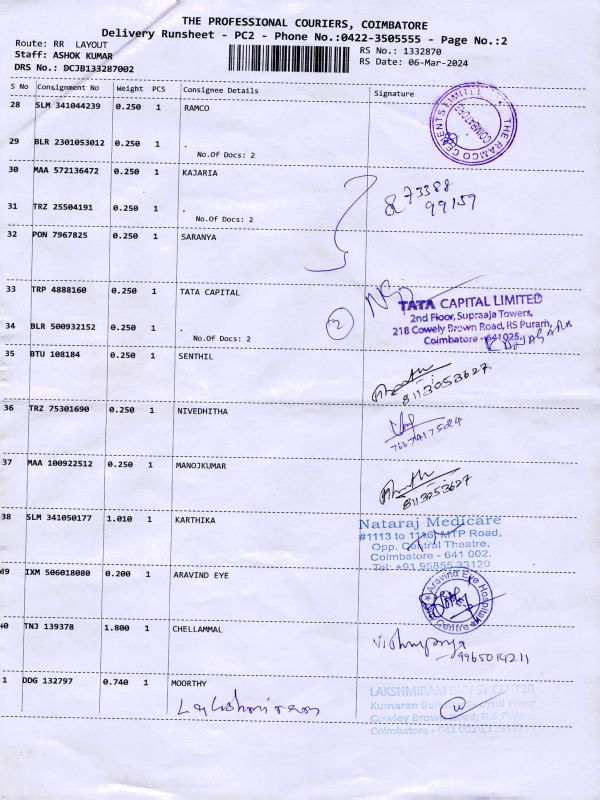 THE PROFESSIONAL COURIERS, COIMBATORE
Delivery Runsheet - PC2 - Phone No.:0422-3505555 - Page No.:2
Route: RR LAYOUT
RS No.: 1332870
Staff: ASHOK KUMAR
RS Date: 06-Mar-2024
DRS No.: DCJB133287002
S No Consignment No Weight PCS Consignee Details Signature
28 SLM 341044239 0.250 1 RAMCO
THE RAMCO CEMENTS LIMITED
COIMBATORE
29 BLR 2301053012 0.250 1 .
No.Of Docs: 2
30 MAA 572136472 0.250 1 KAJARIA
73388
99159
31 TRZ 25504191 0.250 1 .
No.Of Docs: 2
32 PON 7967825 0.250 1 SARANYA
33 TRP 4888160 0.250 1 TATA CAPITAL
TATA CAPITAL LIMITED
2nd Floor, Supraaja Towers,
218 Cowely Brown Road, RS Puram,
Coimbatore - 641025.
2
34 BLR 500932152 0.250 1 .
No.Of Docs: 2
35 BTU 108184 0.250 1 SENTHIL
8113053627
36 TRZ 75301690 0.250 1 NIVEDHITHA
37 MAA 100922512 0.250 1 MANOJKUMAR
8113053627
38 SLM 341050177 1.010 1 KARTHIKA
Nataraj Medicare
#1113 to 1116, MTP Road,
Opp. Central Theatre,
Coimbatore - 641 002.
Tel: +91 95855 33120
39 IXM 506018080 0.200 1 ARAVIND EYE
Aravind Eye Hospital
Centre
40 TNJ 139378 1.800 1 CHELLAMMAL
Vishnupriya
9965014211
1 DDG 132797 0.740 1 MOORTHY
LAKSHMIRAM BIOPSY CENTER
Kumaran Building, Second Floor
Cowley Brown Road, R.S.Puram
Coimbatore - 641 002